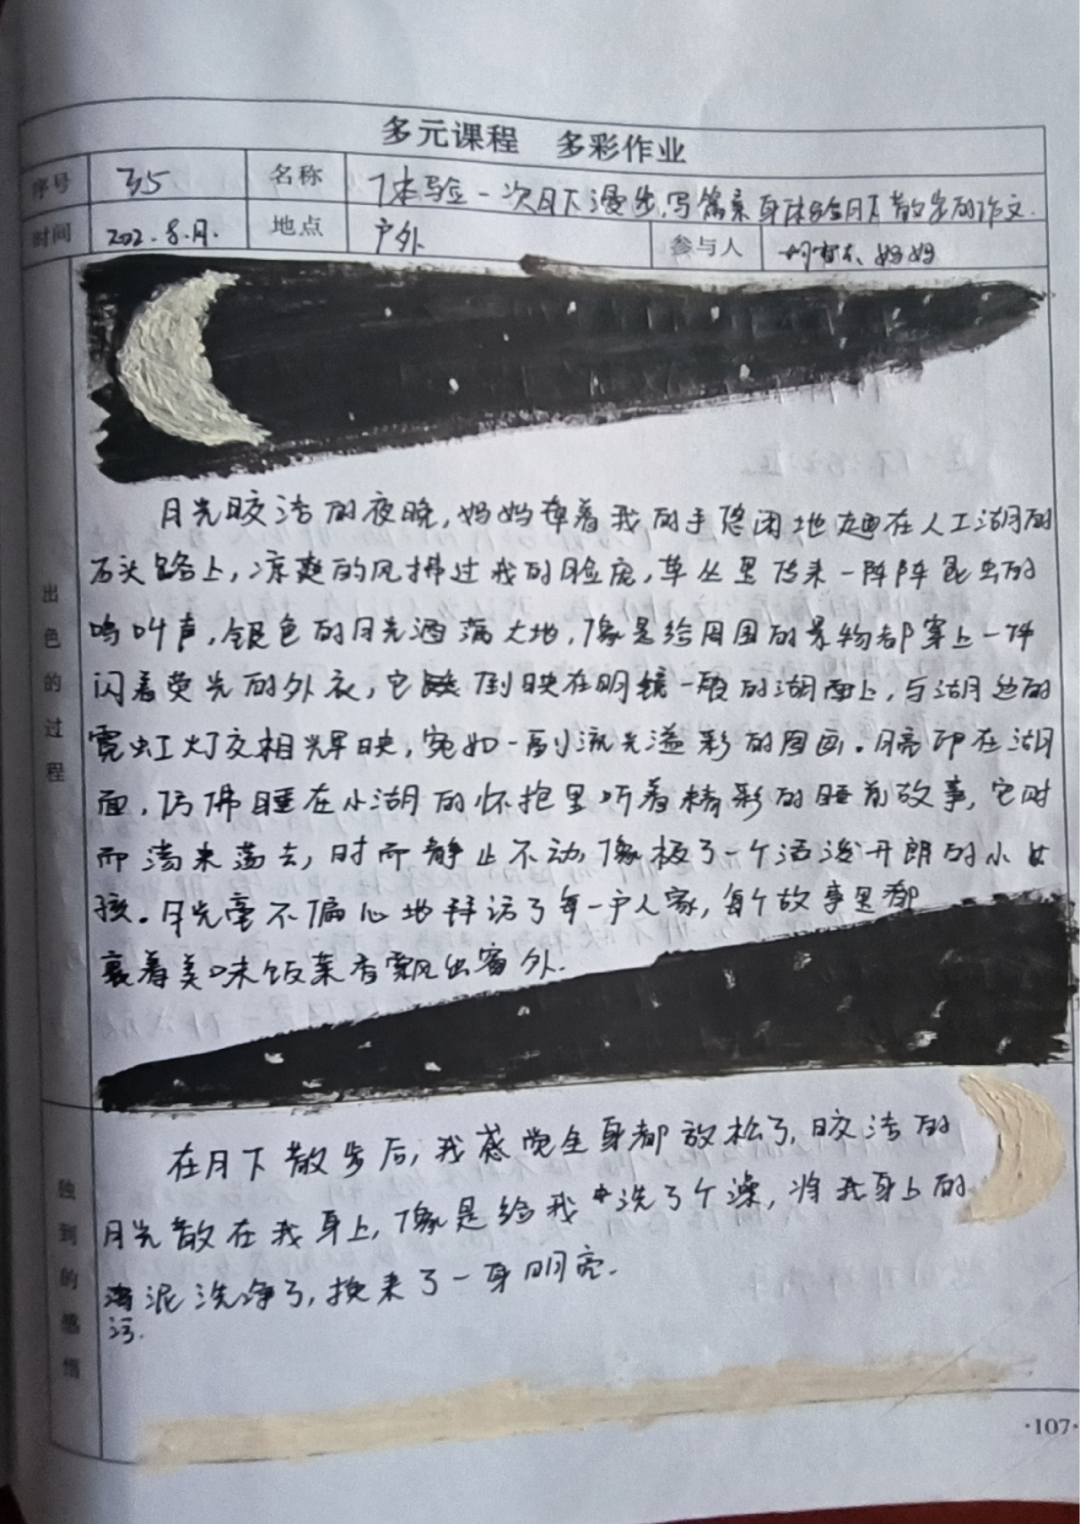 多元课程 多彩作业
序号 35 名称 体验一次月下漫步,写篇亲身体验月下散步的作文.
时间 202.8.月. 地点 户外 参与人 妈妈
出色的过程
月光皎洁的夜晚,妈妈牵着我的手悠闲地走在人工湖的
石头路上,凉爽的风拂过我的脸庞,草丛里传来一阵阵昆虫的
鸣叫声,银色的月光洒落大地,像是给周围的景物都穿上一件
闪着荧光的外衣,它倒映在明镜一般的湖面上,与湖边的
霓虹灯交相辉映,宛如一副流光溢彩的图画。月亮印在湖
面,仿佛睡在小湖的怀抱里听着精彩的睡前故事,它时
而荡来荡去,时而静止不动,像极了一个活泼开朗的小女
孩。月光毫不偏心地拜访了每一户人家,每个故事里都
裹着美味饭菜香飘出窗外.
独到的感悟
在月下散步后,我感觉全身都放松了,皎洁的
月光散在我身上,像是给我洗了个澡,将我身上的
污泥洗净了,换来了一身明亮.
·107·